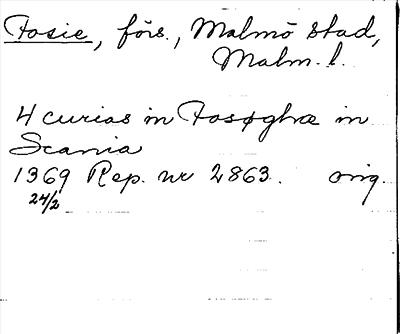 Fosie, förs., Malmö stad,
Malm. l.
4 curias in Fosøghæ in
Scania
1369 Rep. nr 2863. orig.
24/2